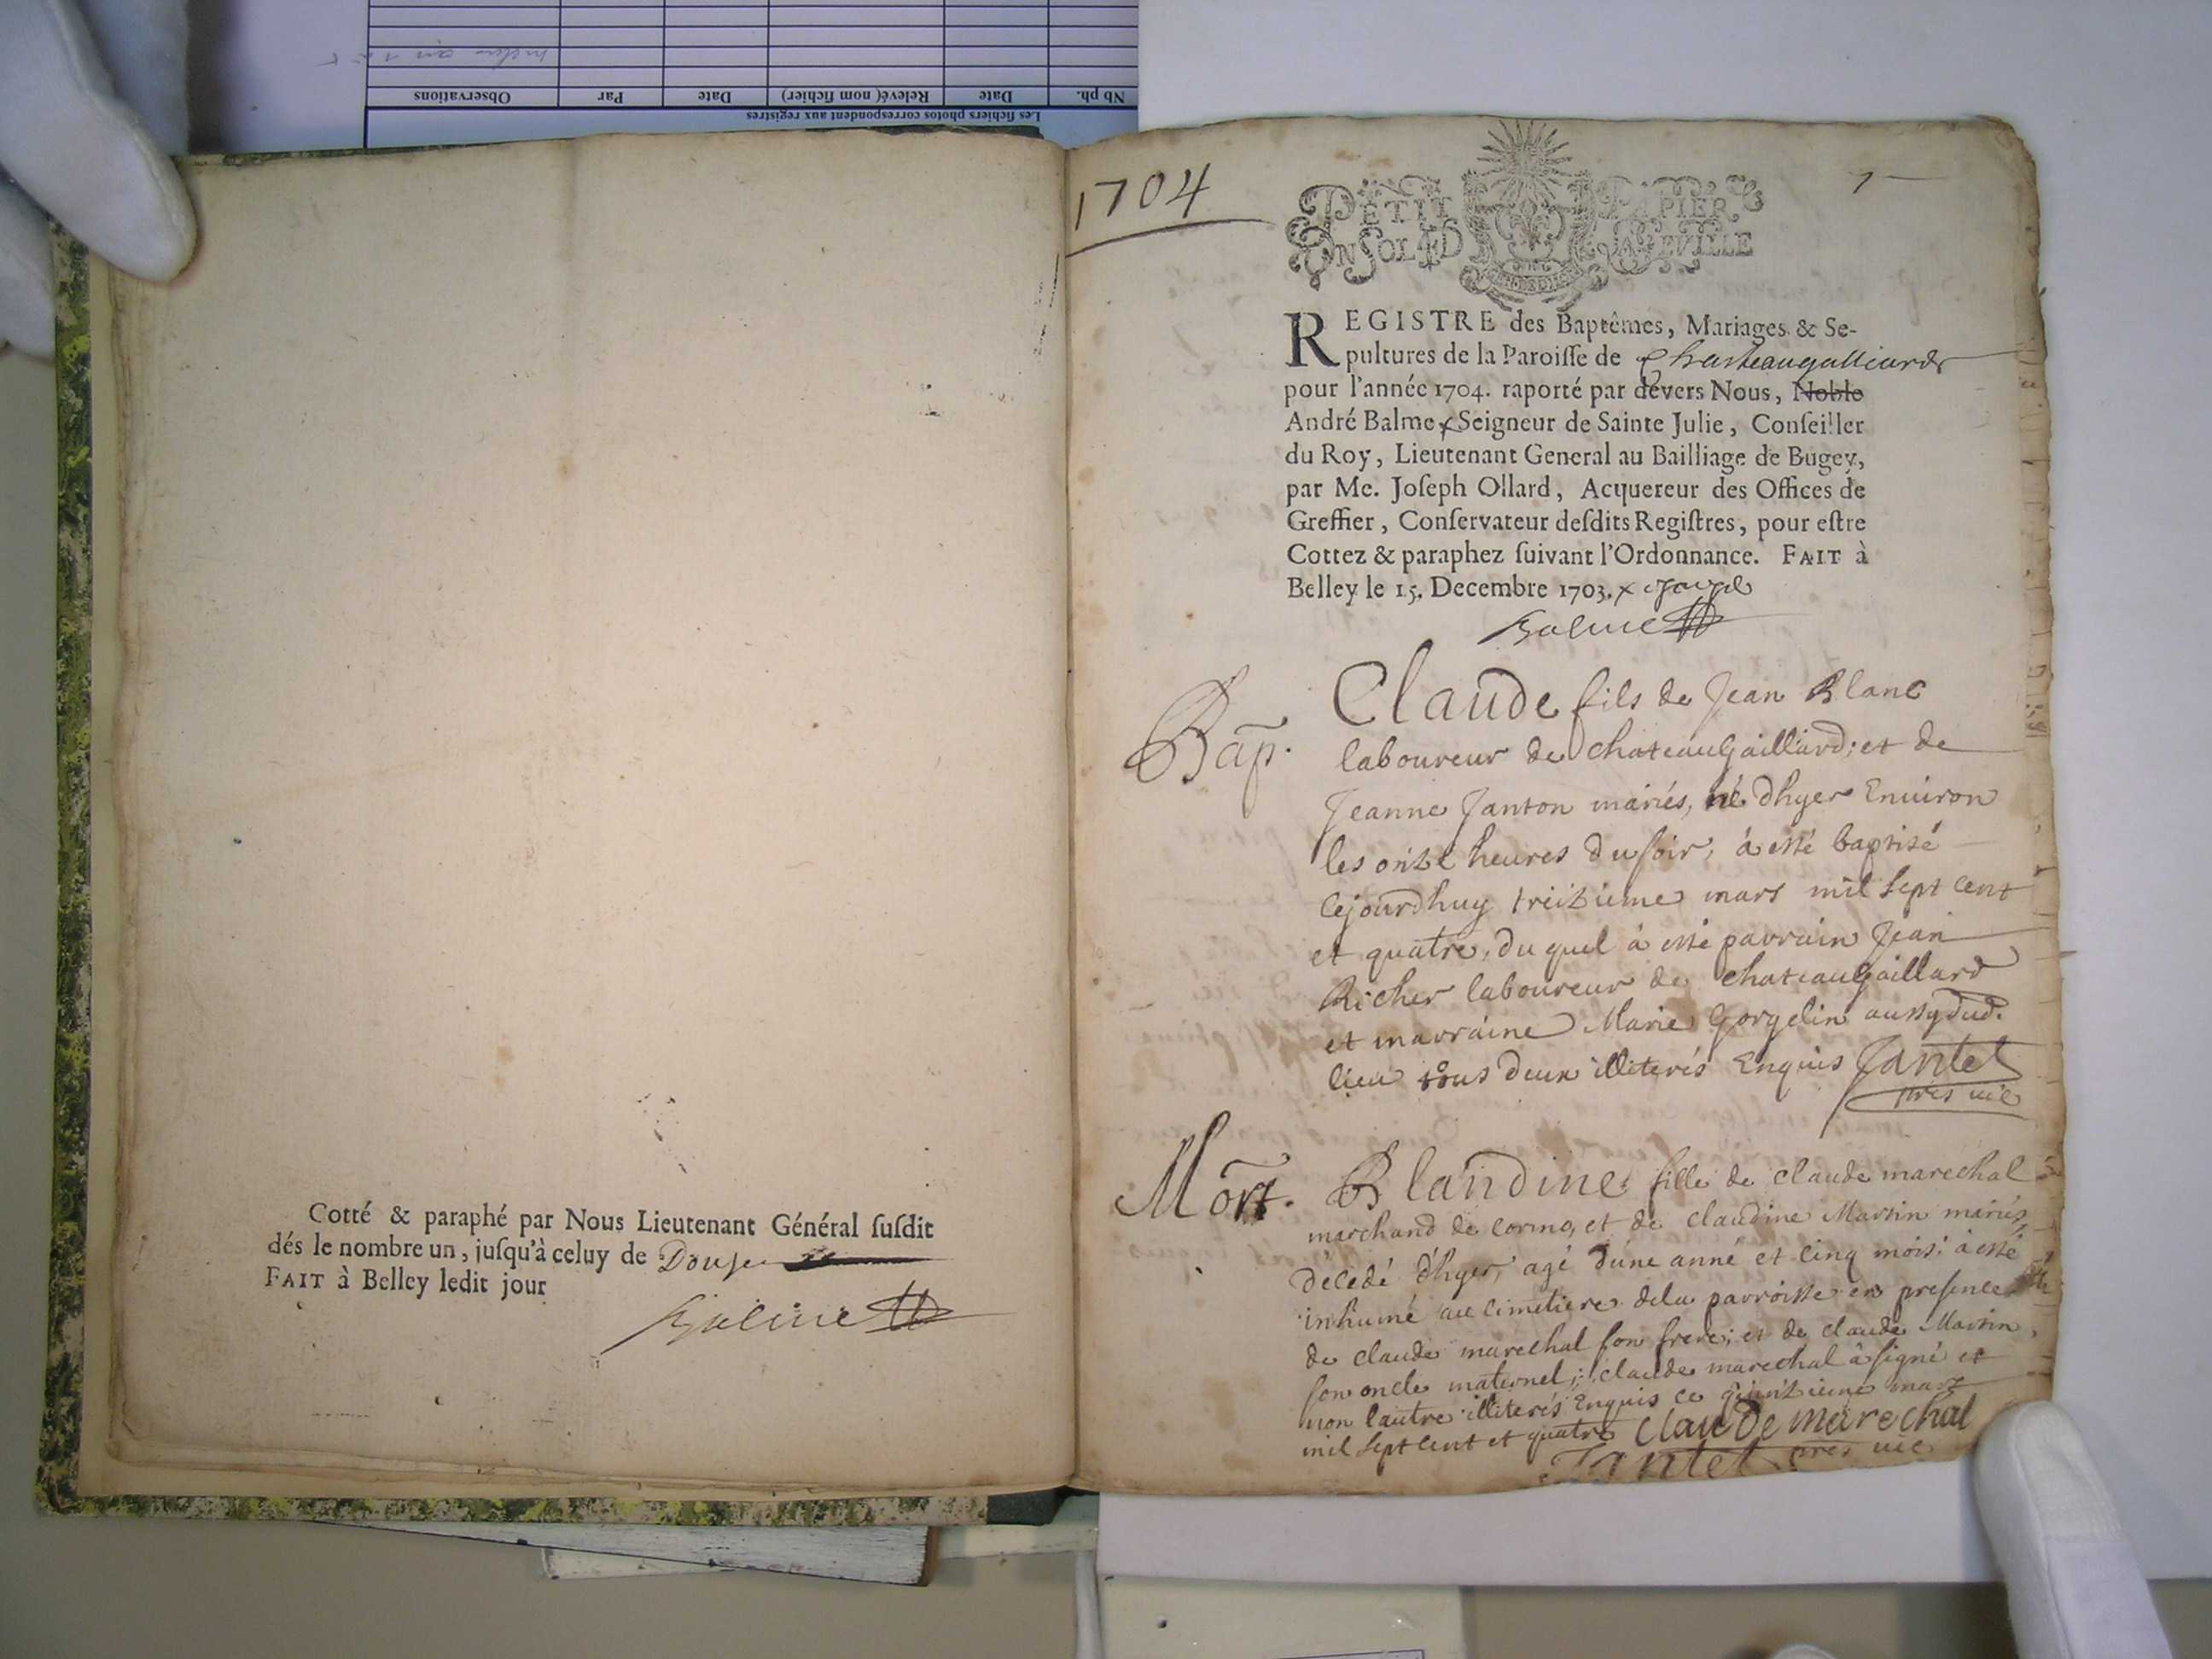 Observations
Par
Date
Relevé (nom fichier)
Date
Nb ph.
Les fichiers photos correspondent aux registres
Cotté & paraphé par Nous Lieutenant Général susdit
dés le nombre un, jusqu'à celuy de Douze
FAIT à Belley ledit jour
Balme
1704
PETIT PAPIER
UN SOL 4 D LA FEVILLE
REGISTRE des Baptêmes, Mariages & Se-
pultures de la Paroisse de Chasteaugalliard
pour l'année 1704. raporté par devers Nous, Noble
André Balme x Seigneur de Sainte Julie, Conseiller
du Roy, Lieutenant General au Bailliage de Bugey,
par Me. Joseph Ollard, Acquereur des Offices de
Greffier, Conservateur desdits Registres, pour estre
Cottez & paraphez suivant l'Ordonnance. FAIT à
Belley le 15. Decembre 1703. x
Balme
Bap. Claude fils de Jean Blanc
laboureur de chateauGaillard; et de
Jeanne Janton mariés, né dhyer Environ
les onze heures du soir, à esté baptisé
cejourdhuy treizieme mars mil sept cent
et quatre, du quel à esté parrain Jean
Richer laboureur de chateauGaillard
et marraine Marie Gorgelin aussy dud.
lieu tous deux illiterés Enquis Jantet
pres vic
Mort. Blandine fille de claude marechal
marchand de Cormo, et de claudine Martin mariés,
décedé d'hyer, agé d'une anné et cinq mois, à esté
inhumé au cimetiere dela parroisse en presence
de claude marechal son frere; et de claude Martin,
son oncle maternel; claude marechal à signé et
non lautre illiterés Enquis ce quinzieme mars
mil sept cent et quatre Claude marechal
Jantet pres vic